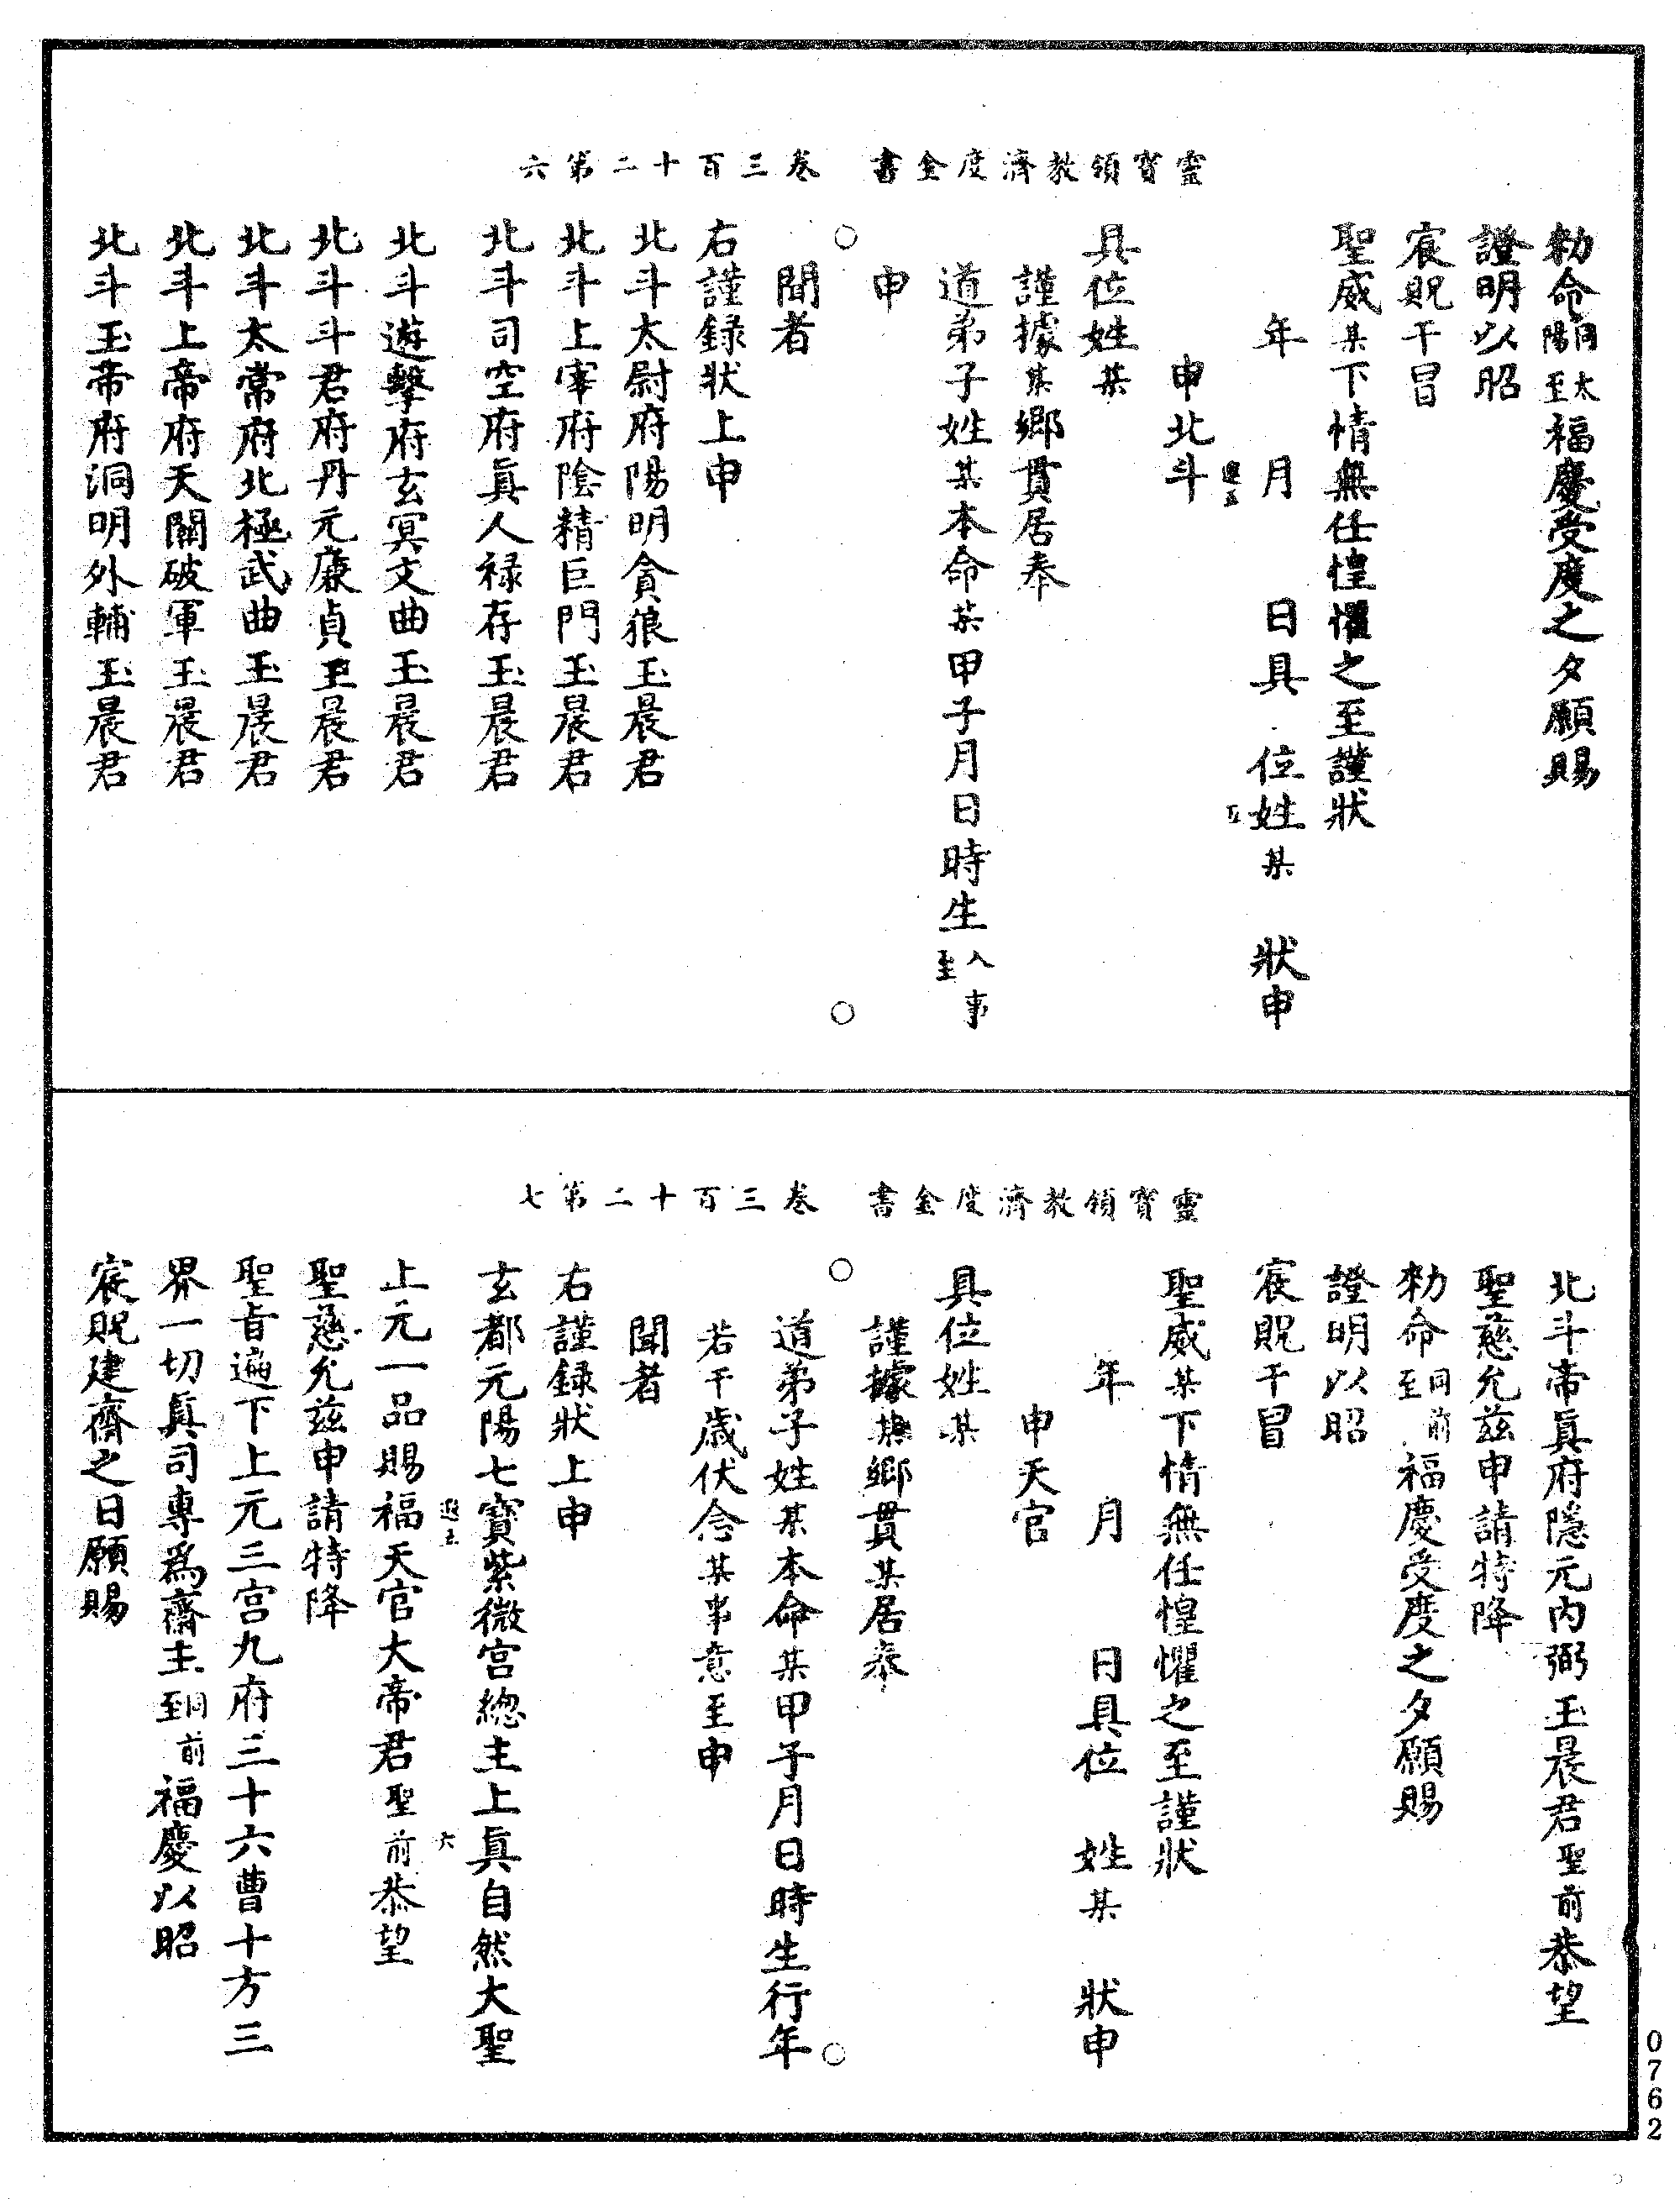 靈寶領教濟度金書　卷三百二十第六
勑命同太陽至福慶受度之夕願賜
證明以昭
宸貺干冒
聖威某下情無任惶懼之至謹狀
年　月　日具　位姓某　狀申
申北斗
具位姓某
謹據某鄉貫居奉
道弟子姓某本命某甲子月日時生入事至
申
聞者
右謹録狀上申
北斗太尉府陽明貪狼玉晨君
北斗上宰府陰精巨門玉晨君
北斗司空府眞人禄存玉晨君
北斗遊擊府玄冥文曲玉晨君
北斗斗君府丹元廉貞玉晨君
北斗太常府北極武曲玉晨君
北斗上帝府天關破軍玉晨君
北斗玉帝府洞明外輔玉晨君
靈寶領教濟度金書　卷三百二十第七
北斗帝眞府隱元内弼玉晨君聖前恭望
聖慈允兹申請特降
勑命同前至福慶受度之夕願賜
證明以昭
宸貺干冒
聖威某下情無任惶懼之至謹狀
年　月　日具位　姓某　狀申
申天官
具位姓某
謹據某鄉貫某居奉
道弟子姓某本命某甲子月日時生行年
若干歲伏念某事意至申
聞者
右謹録狀上申
玄都元陽七寶紫微宫總主上眞自然大聖
六
上元一品賜福天官大帝君聖前恭望
聖慈允兹申請特降
聖旨遍下上元三宫九府三十六曹十方三
界一切眞司專爲齋主同前至福慶以昭
宸貺建齋之日願賜
0762